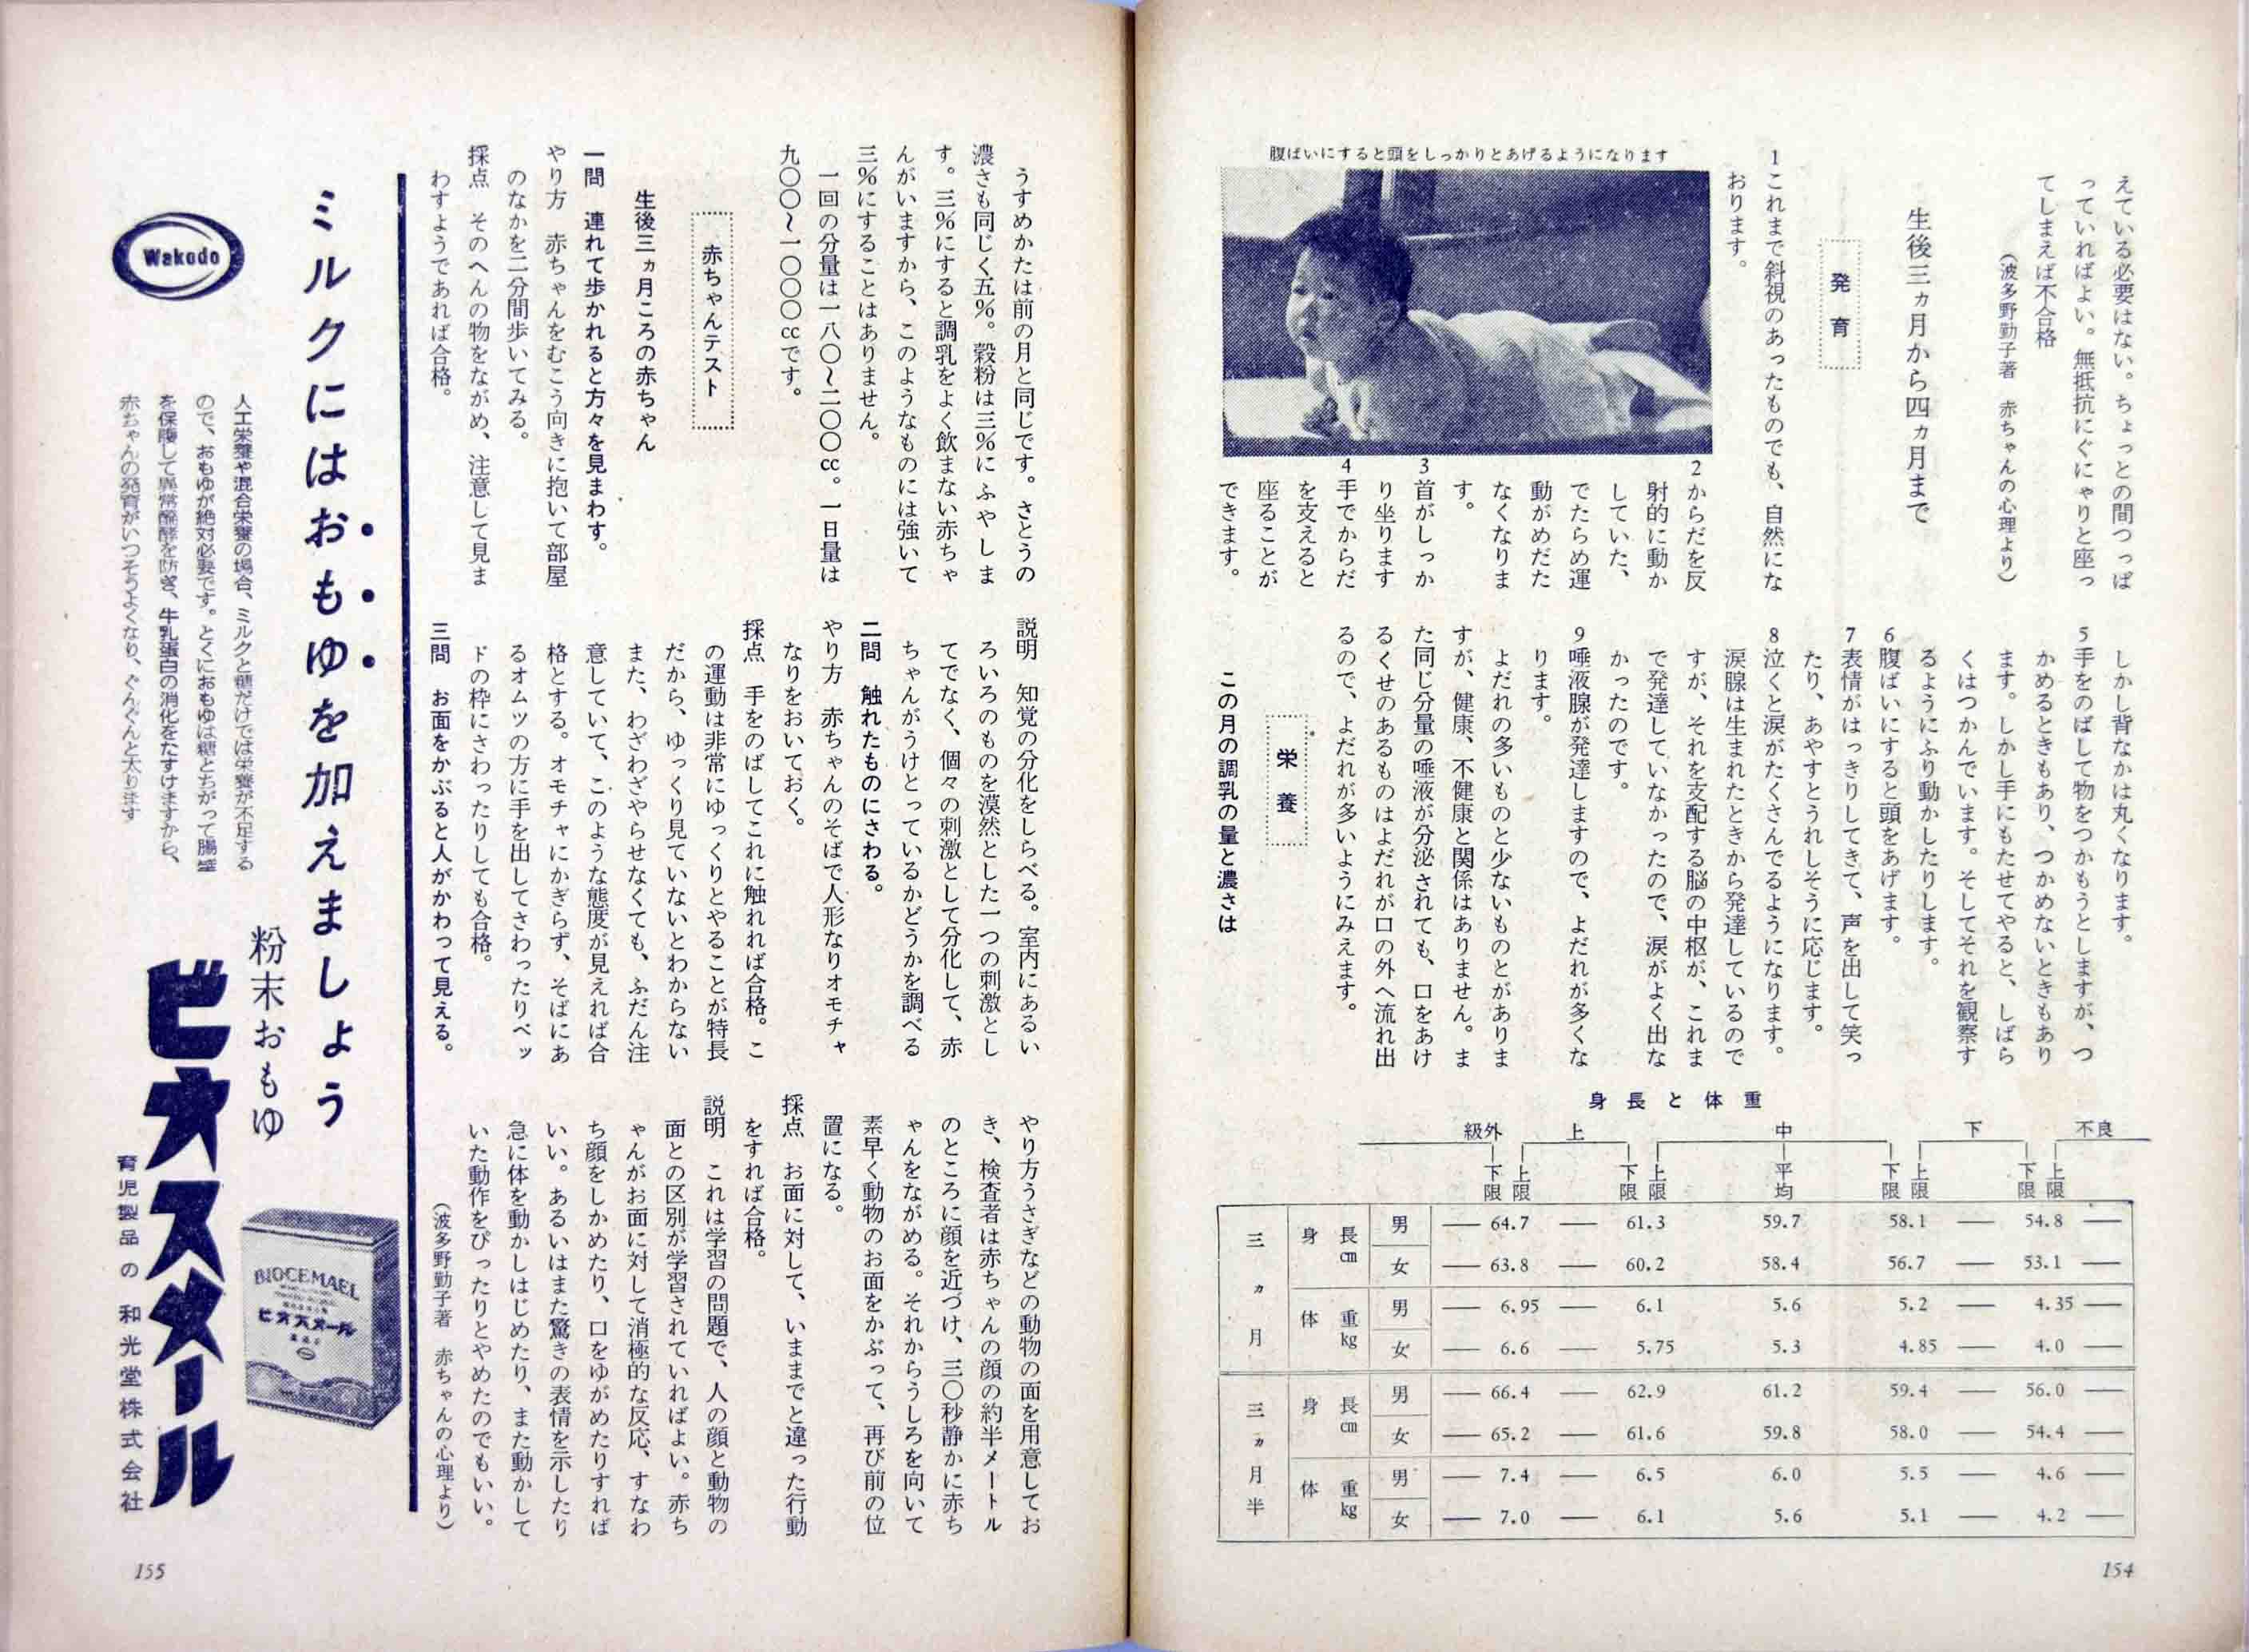 えている必要はない。ちょっとの間つっぱ
っていればよい。無抵抗にぐにゃりと座っ
てしまえば不合格
(波多野勤子著 赤ちゃんの心理より)
生後三ヵ月から四ヵ月まで
発育
1これまで斜視のあったものでも、自然にな
おります。
腹ばいにすると頭をしっかりとあげるようになります
2からだを反
射的に動か
していた、
でたらめ運
動がめだた
なくなりま
す。
3首がしっか
り坐ります
4手でからだ
を支えると
座ることが
できます。
しかし背なかは丸くなります。
5手をのばして物をつかもうとしますが、つ
かめるときもあり、つかめないときもあり
ます。しかし手にもたせてやると、しばら
くはつかんでいます。そしてそれを観察す
るようにふり動かしたりします。
6腹ばいにすると頭をあげます。
7表情がはっきりしてきて、声を出して笑っ
たり、あやすとうれしそうに応じます。
8泣くと涙がたくさんでるようになります。
涙腺は生まれたときから発達しているので
すが、それを支配する脳の中枢が、これま
で発達していなかったので、涙がよく出な
かったのです。
9唾液腺が発達しますので、よだれが多くな
ります。
よだれの多いものと少ないものとがありま
すが、健康、不健康と関係はありません。ま
た同じ分量の唾液が分泌されても、口をあけ
るくせのあるものはよだれが口の外へ流れ出
るので、よだれが多いようにみえます。
栄養
この月の調乳の量と濃さは
身長と体重
級外 上 中 下 不良
下限 上限 下限 上限 平均 下限 上限 下限 上限
三ヵ月 身長cm 男 — 64.7 — 61.3 59.7 58.1 — 54.8 —
女 — 63.8 — 60.2 58.4 56.7 — 53.1 —
体重kg 男 — 6.95 — 6.1 5.6 5.2 — 4.35 —
女 — 6.6 — 5.75 5.3 4.85 — 4.0 —
三ヵ月半 身長cm 男 — 66.4 — 62.9 61.2 59.4 — 56.0 —
女 — 65.2 — 61.6 59.8 58.0 — 54.4 —
体重kg 男 — 7.4 — 6.5 6.0 5.5 — 4.6 —
女 — 7.0 — 6.1 5.6 5.1 — 4.2 —
154
うすめかたは前の月と同じです。さとうの
濃さも同じく五%。穀粉は三%にふやしま
す。三%にすると調乳をよく飲まない赤ちゃ
んがいますから、このようなものには強いて
三%にすることはありません。
一回の分量は一八〇〜二〇〇cc。一日量は
九〇〇〜一〇〇〇ccです。
赤ちゃんテスト
生後三ヵ月ころの赤ちゃん
一問 連れて歩かれると方々を見まわす。
やり方 赤ちゃんをむこう向きに抱いて部屋
のなかを二分間歩いてみる。
採点 そのへんの物をながめ、注意して見ま
わすようであれば合格。
説明 知覚の分化をしらべる。室内にあるい
ろいろのものを漠然とした一つの刺激とし
てでなく、個々の刺激として分化して、赤
ちゃんがうけとっているかどうかを調べる
二問 触れたものにさわる。
やり方 赤ちゃんのそばで人形なりオモチャ
なりをおいておく。
採点 手をのばしてこれに触れれば合格。こ
の運動は非常にゆっくりとやることが特長
だから、ゆっくり見ていないとわからない
また、わざわざやらせなくても、ふだん注
意していて、このような態度が見えれば合
格とする。オモチャにかぎらず、そばにあ
るオムツの方に手を出してさわったりベッ
ドの枠にさわったりしても合格。
三問 お面をかぶると人がかわって見える。
やり方うさぎなどの動物の面を用意してお
き、検査者は赤ちゃんの顔の約半メートル
のところに顔を近づけ、三〇秒静かに赤ち
ゃんをながめる。それからうしろを向いて
素早く動物のお面をかぶって、再び前の位
置になる。
採点 お面に対して、いままでと違った行動
をすれば合格。
説明 これは学習の問題で、人の顔と動物の
面との区別が学習されていればよい。赤ち
ゃんがお面に対して消極的な反応、すなわ
ち顔をしかめたり、口をゆがめたりすれば
いい。あるいはまた驚きの表情を示したり
急に体を動かしはじめたり、また動かして
いた動作をぴったりとやめたのでもいい。
(波多野勤子著 赤ちゃんの心理より)
ミルクにはおもゆを加えましょう
Wakodo
人工栄養や混合栄養の場合、ミルクと糖だけでは栄養が不足する
ので、おもゆが絶対必要です。とくにおもゆは糖とちがって腸壁
を保護して異常醗酵を防ぎ、牛乳蛋白の消化をたすけますから、
赤ちゃんの発育がいっそうよくなり、ぐんぐんと太ります
粉末おもゆ
ビオスメール
BIOCEMAEL
ビオスメール
育児製品の和光堂株式会社
155